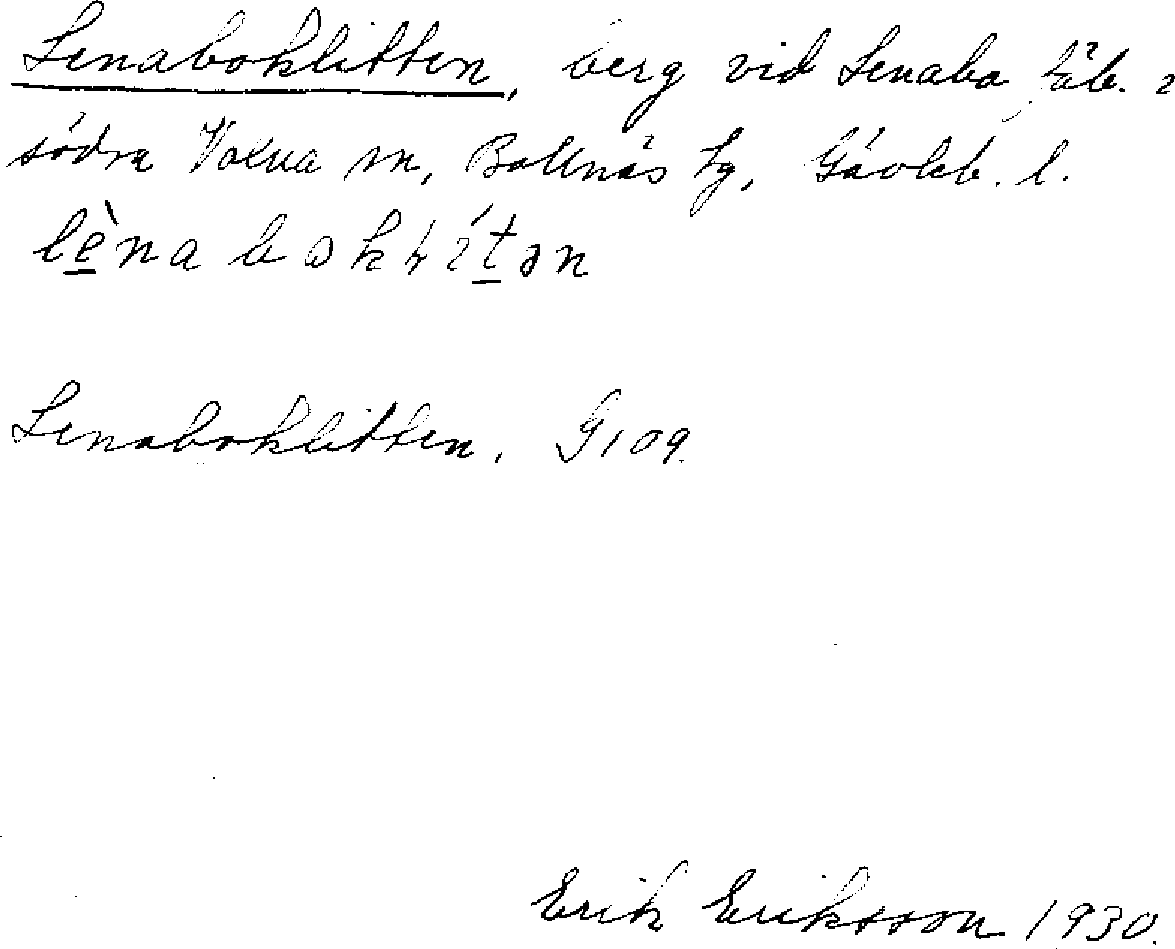 Lenaboklitten, berg vid Lenabo fäb. i
södra Voxna sn, Bollnäs tg, Gävleb. l.
lènaboklítən
Lenaboklitten. G109.
Erik Eriksson 1930.